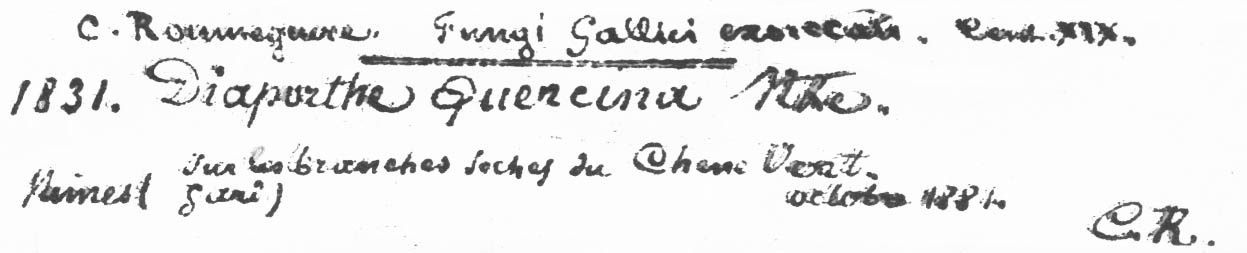 C. Roumeguere. Fungi Gallici exsiccati. Cent. XIX.
1831. Diaporthe Quercina Nke.
Sur les branches seches du Chene Vert.
Nimes ( Gard ) octobre 1881.
C.R.